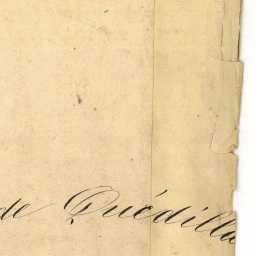 de Quédilla